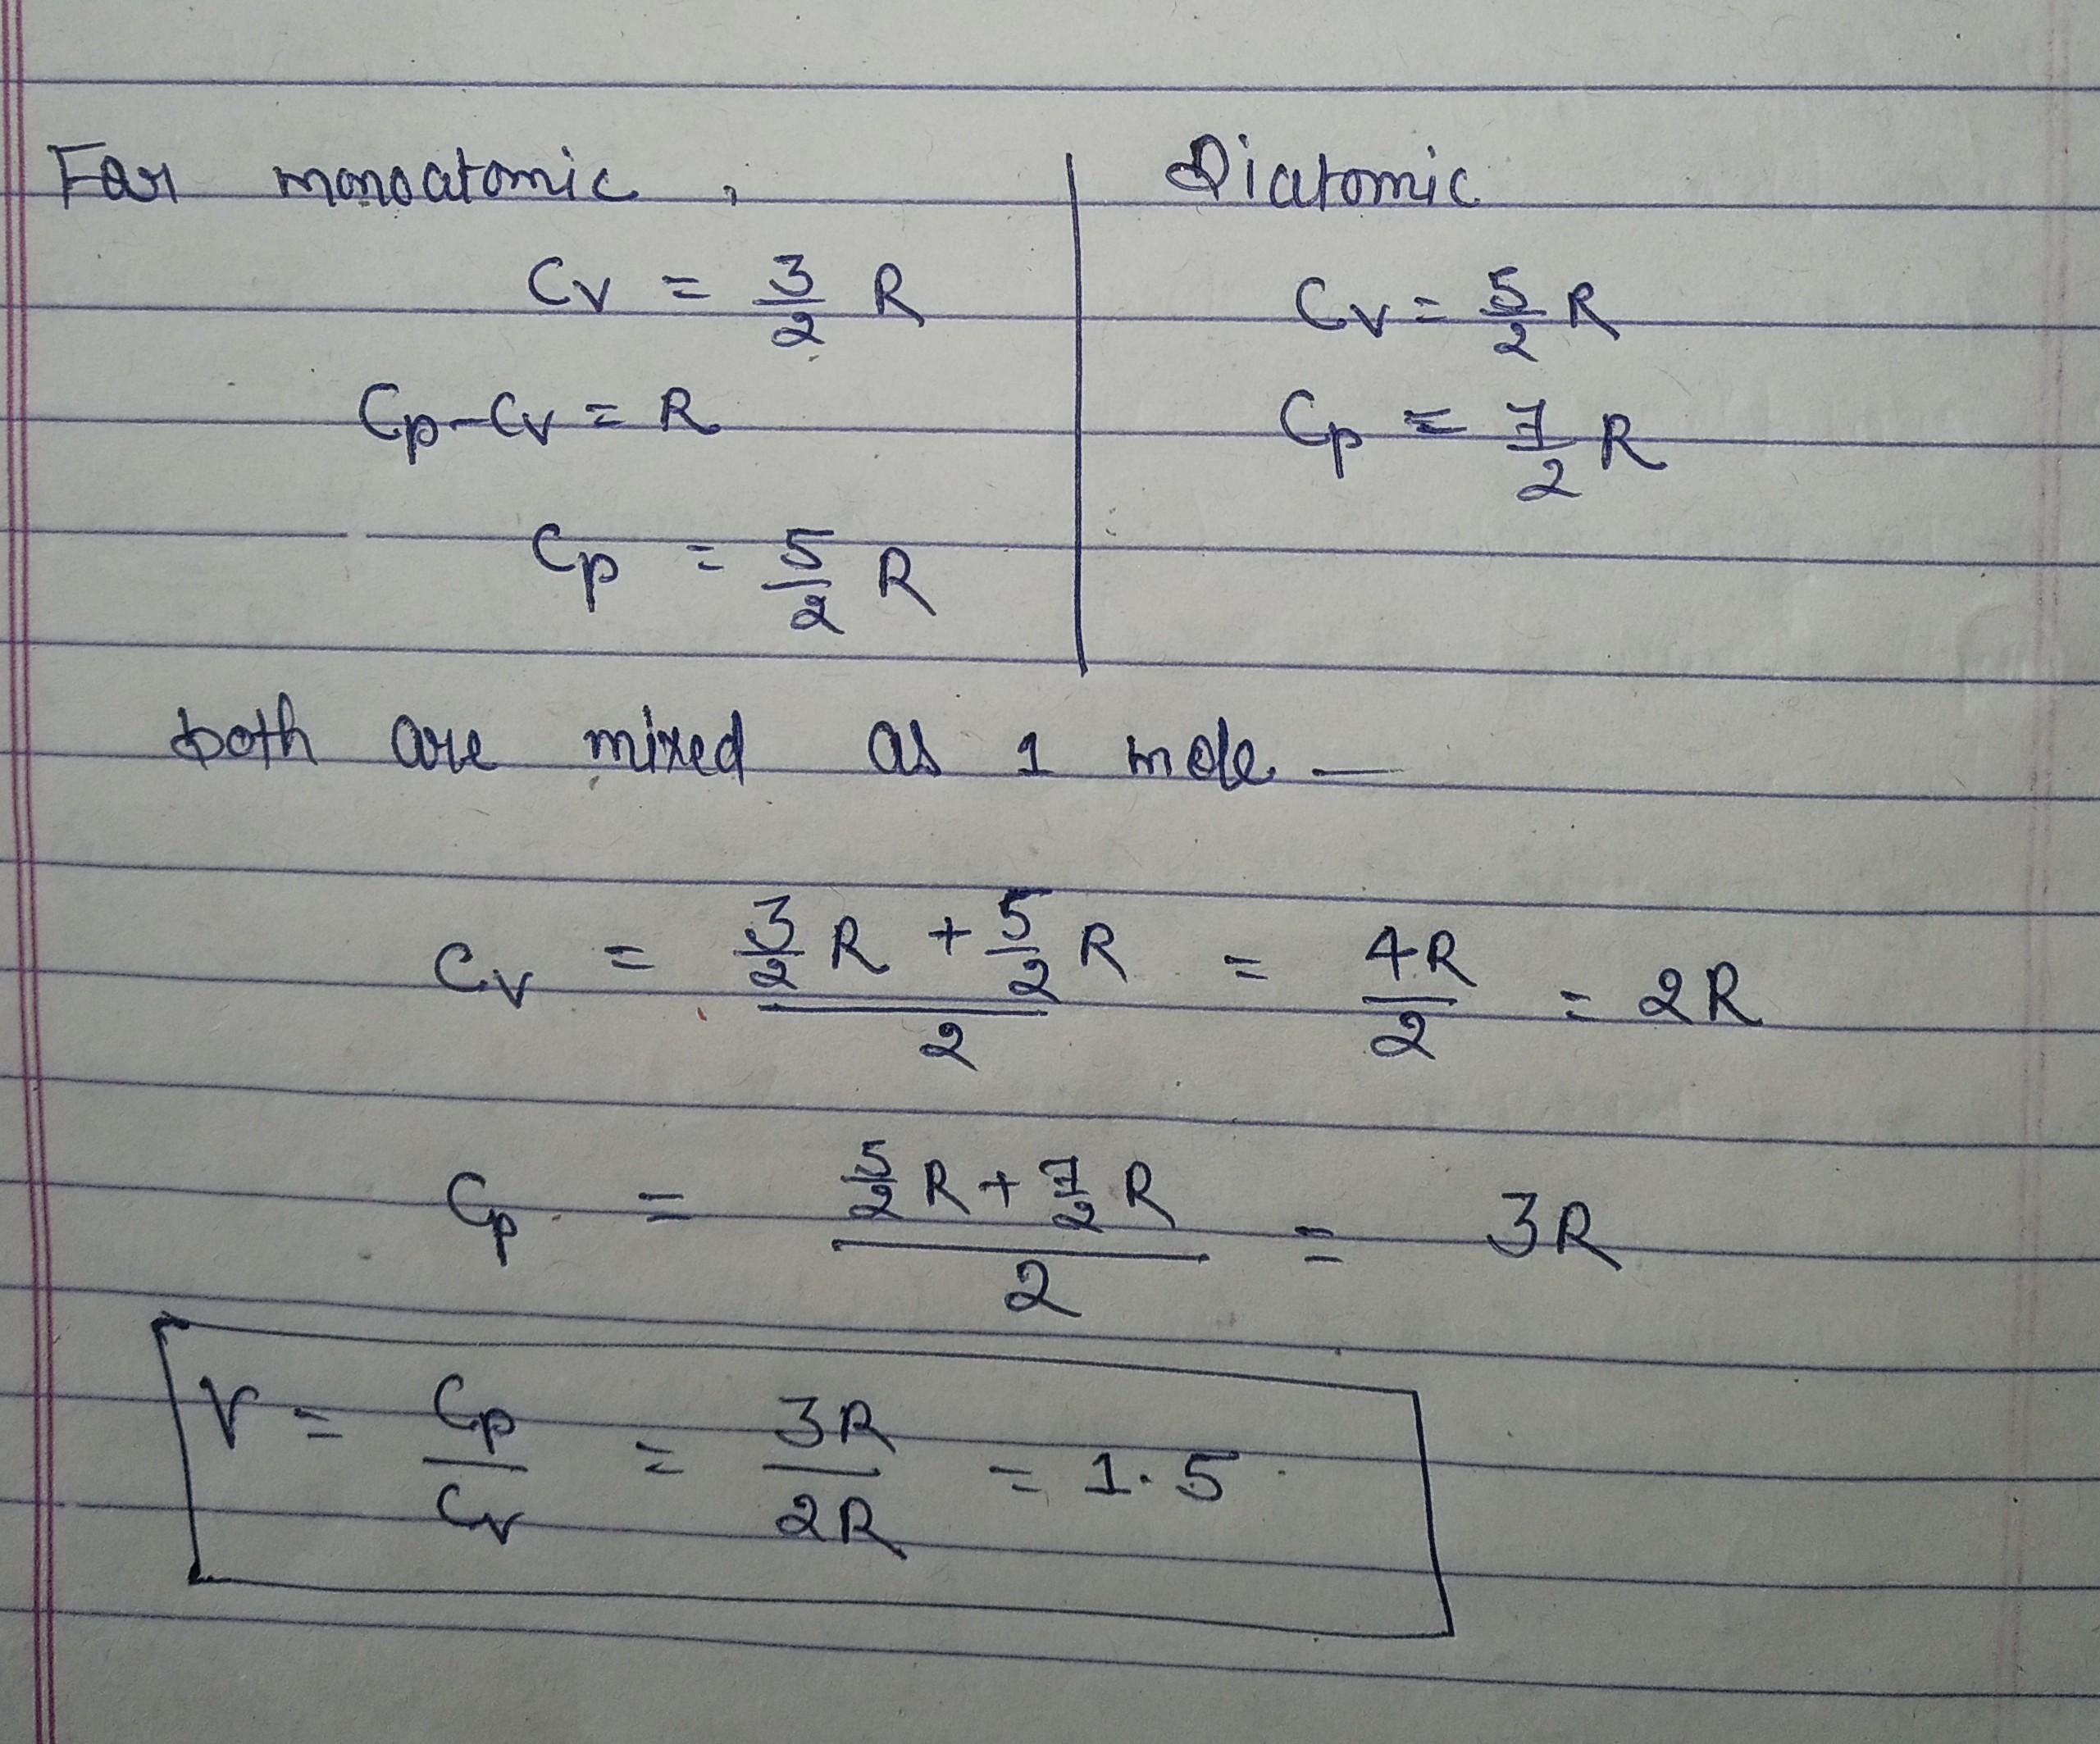 For monoatomic,
Cv = 3/2 R
Cp - Cv = R
Cp = 5/2 R
Diatomic
Cv = 5/2 R
Cp = 7/2 R
both are mixed as 1 mole —
Cv = (3/2 R + 5/2 R)/2 = 4R/2 = 2R
Cp = (5/2 R + 7/2 R)/2 = 3R
γ = Cp/Cv = 3R/2R = 1.5